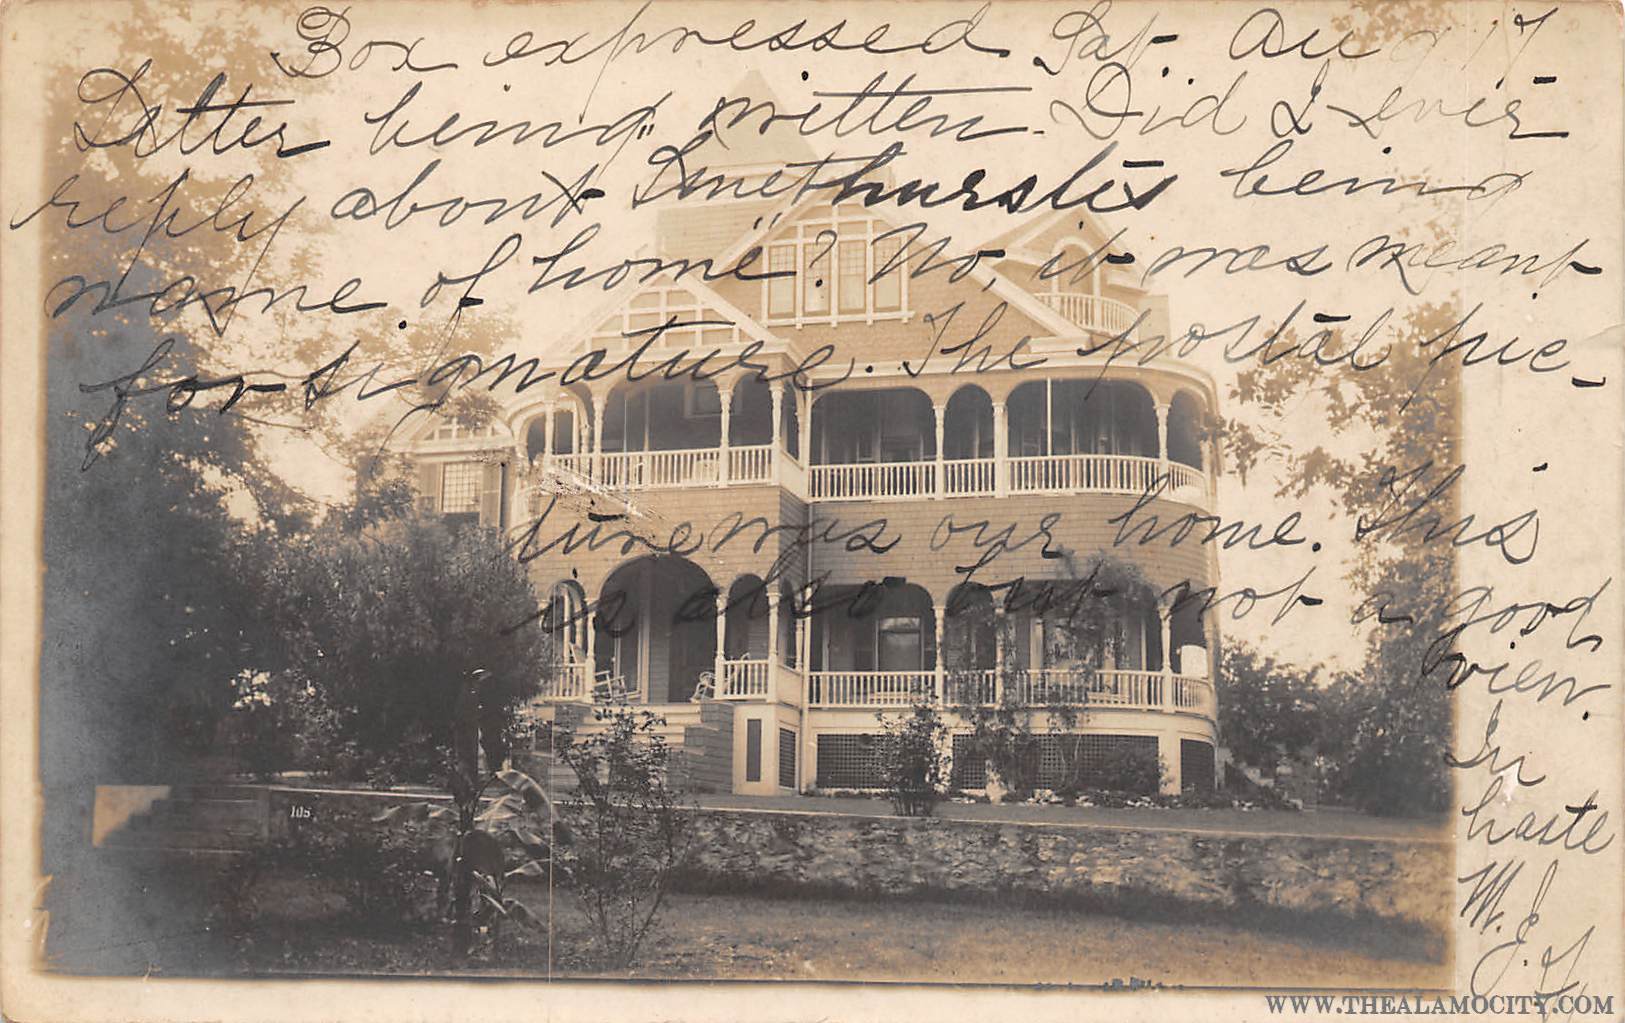 Box expressed Sat. Aug. 17
Letter being written. Did I ever
reply about "Smethursts being
name of home"? No, it was meant
for signature. The postal pic-
ture was our home. This
is also but not a good
view.
In
haste
M.
J.
105
WWW.THEALAMOCITY.COM